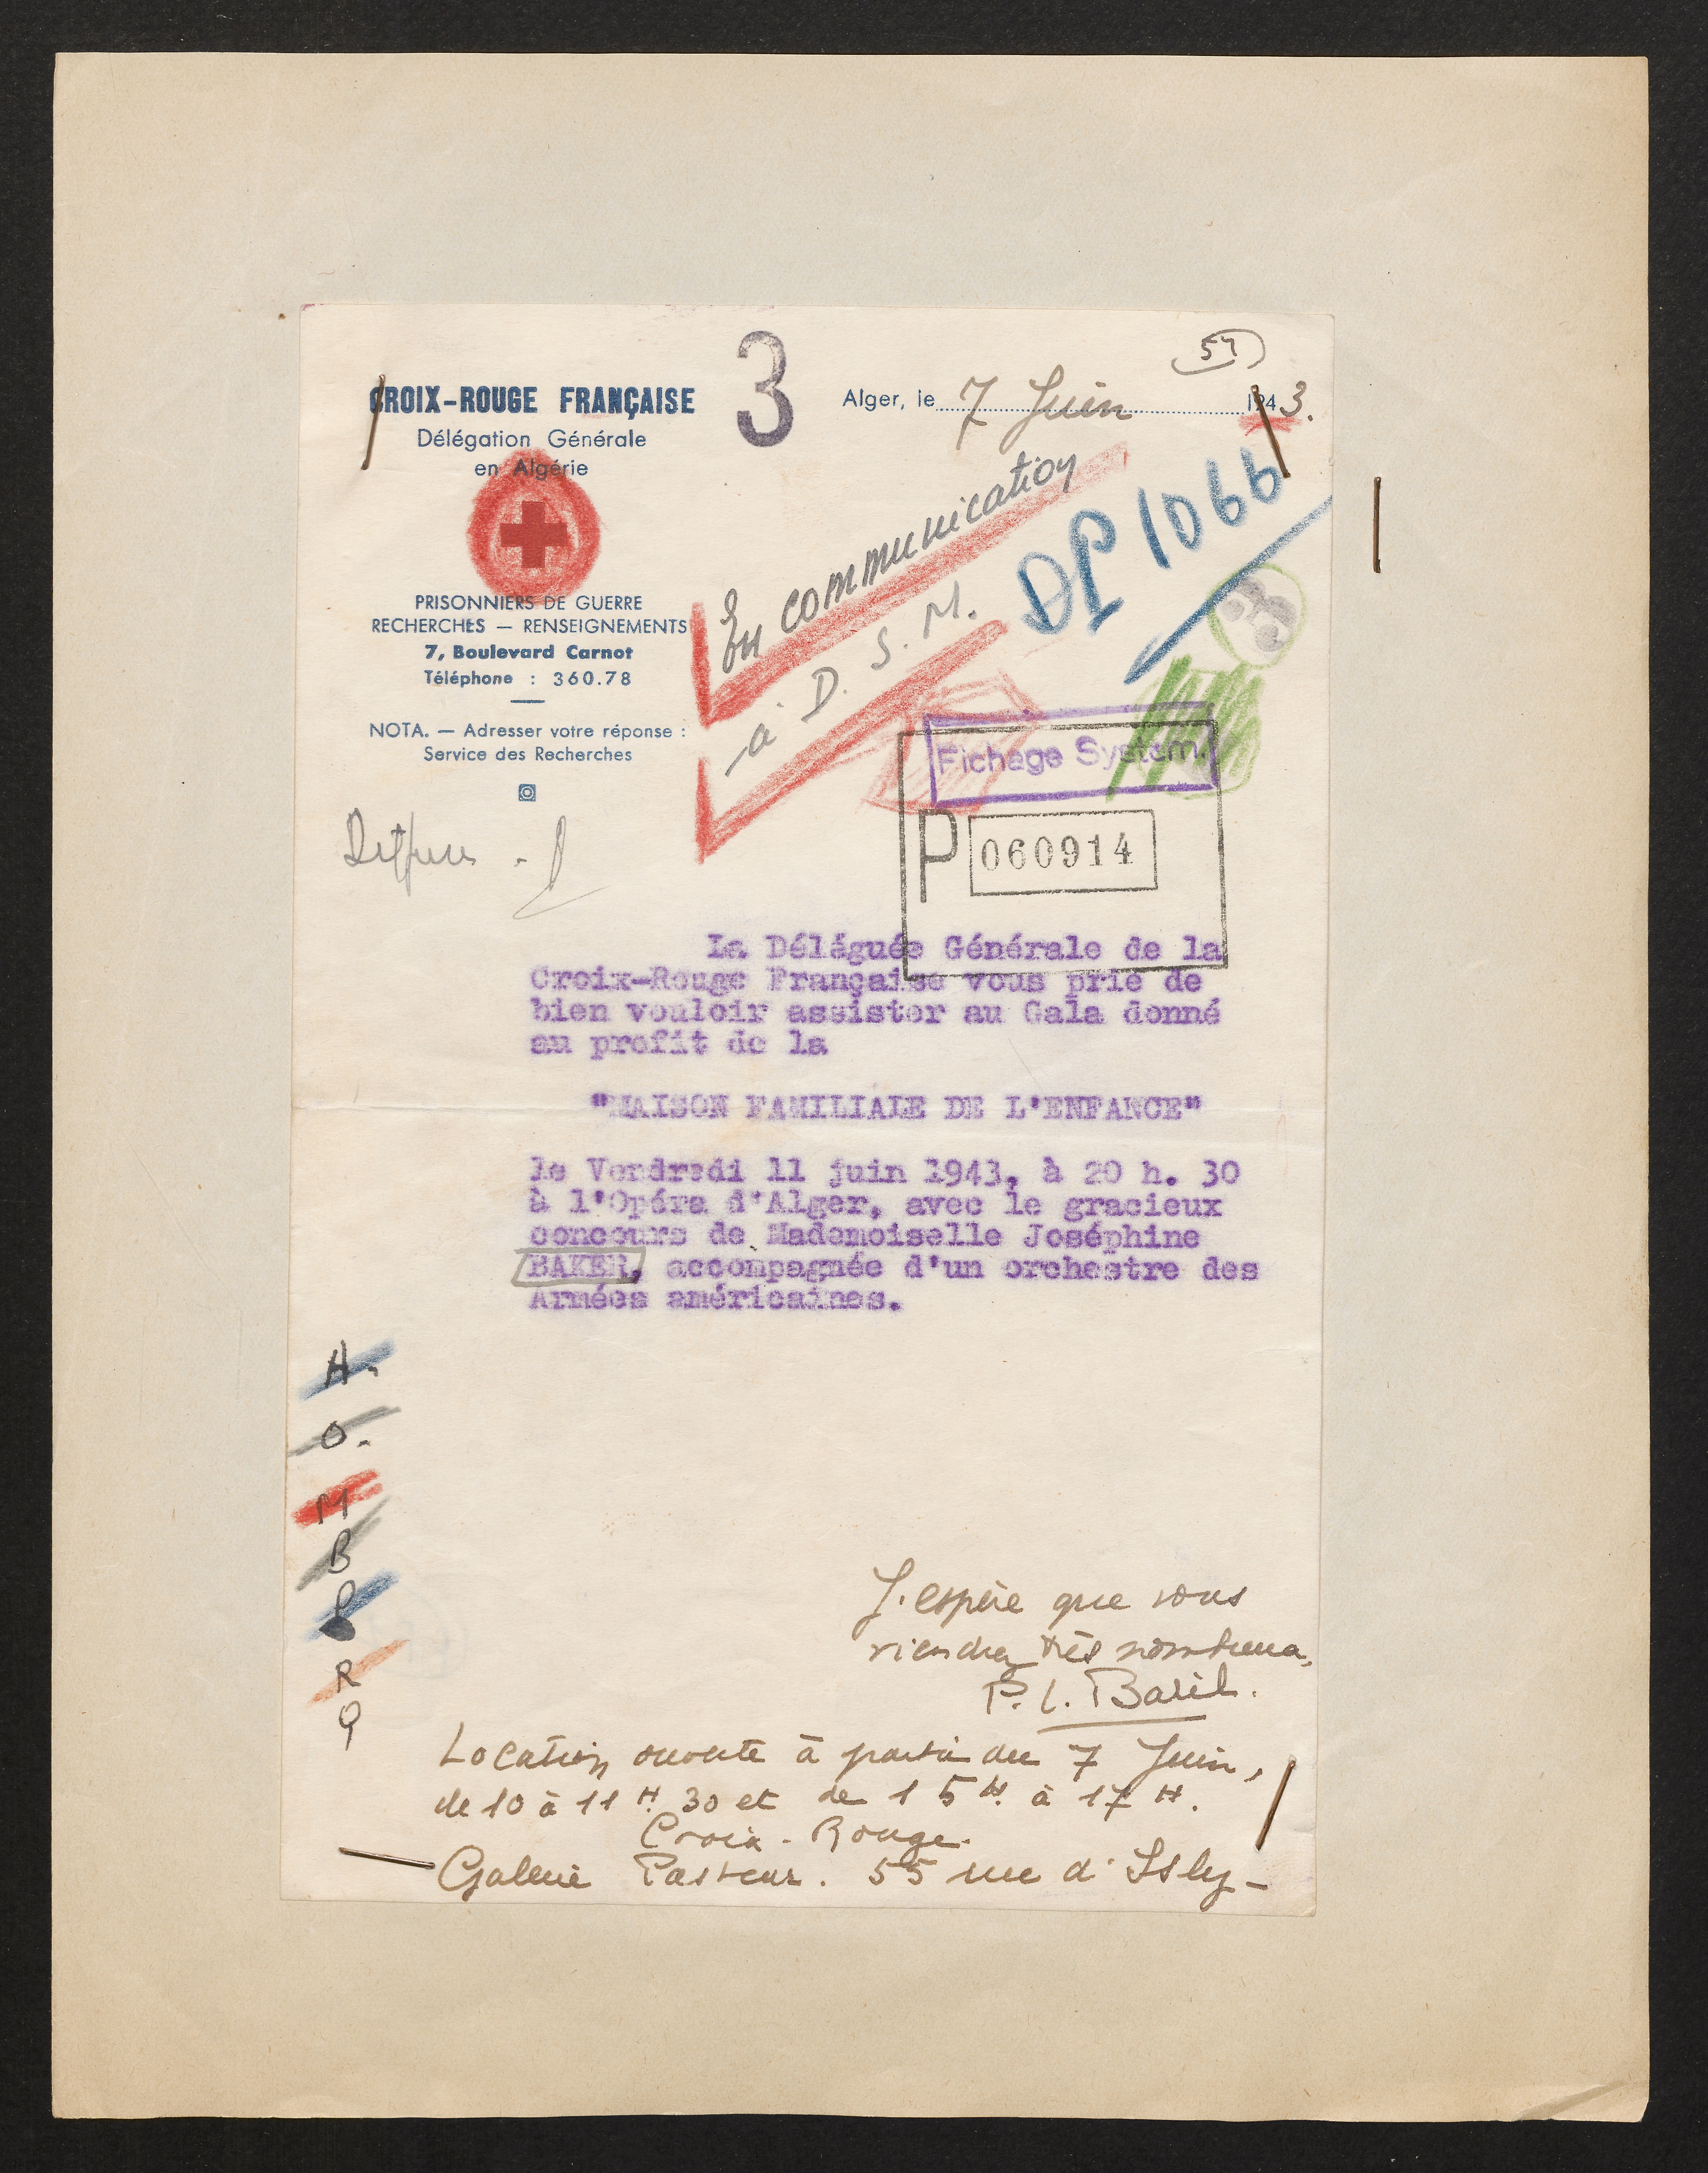 3
54
CROIX-ROUGE FRANÇAISE
Délégation Générale
en Algérie
Alger, le 7 Juin 1943.
PRISONNIERS DE GUERRE
RECHERCHES — RENSEIGNEMENTS
7, Boulevard Carnot
Téléphone : 360.78
NOTA. — Adresser votre réponse :
Service des Recherches
En communication
à D. S. M.
DP 1066
3
Fichage System.
P 060914
La Déléguée Générale de la
Croix-Rouge Française vous prie de
bien vouloir assister au Gala donné
au profit de la
"MAISON FAMILIALE DE L'ENFANCE"
le Vendredi 11 juin 1943, à 20 h. 30
à l'Opéra d'Alger, avec le gracieux
concours de Mademoiselle Joséphine
BAKER, accompagnée d'un orchestre des
Armées américaines.
H.
O.
M
B
R
J'espère que vous
viendrez très nombreux.
Location ouverte à partir du 7 Juin,
de 10 à 11 H. 30 et de 15 H. à 17 H.
Croix-Rouge.
Galerie Pasteur. 55 rue d'Isly-